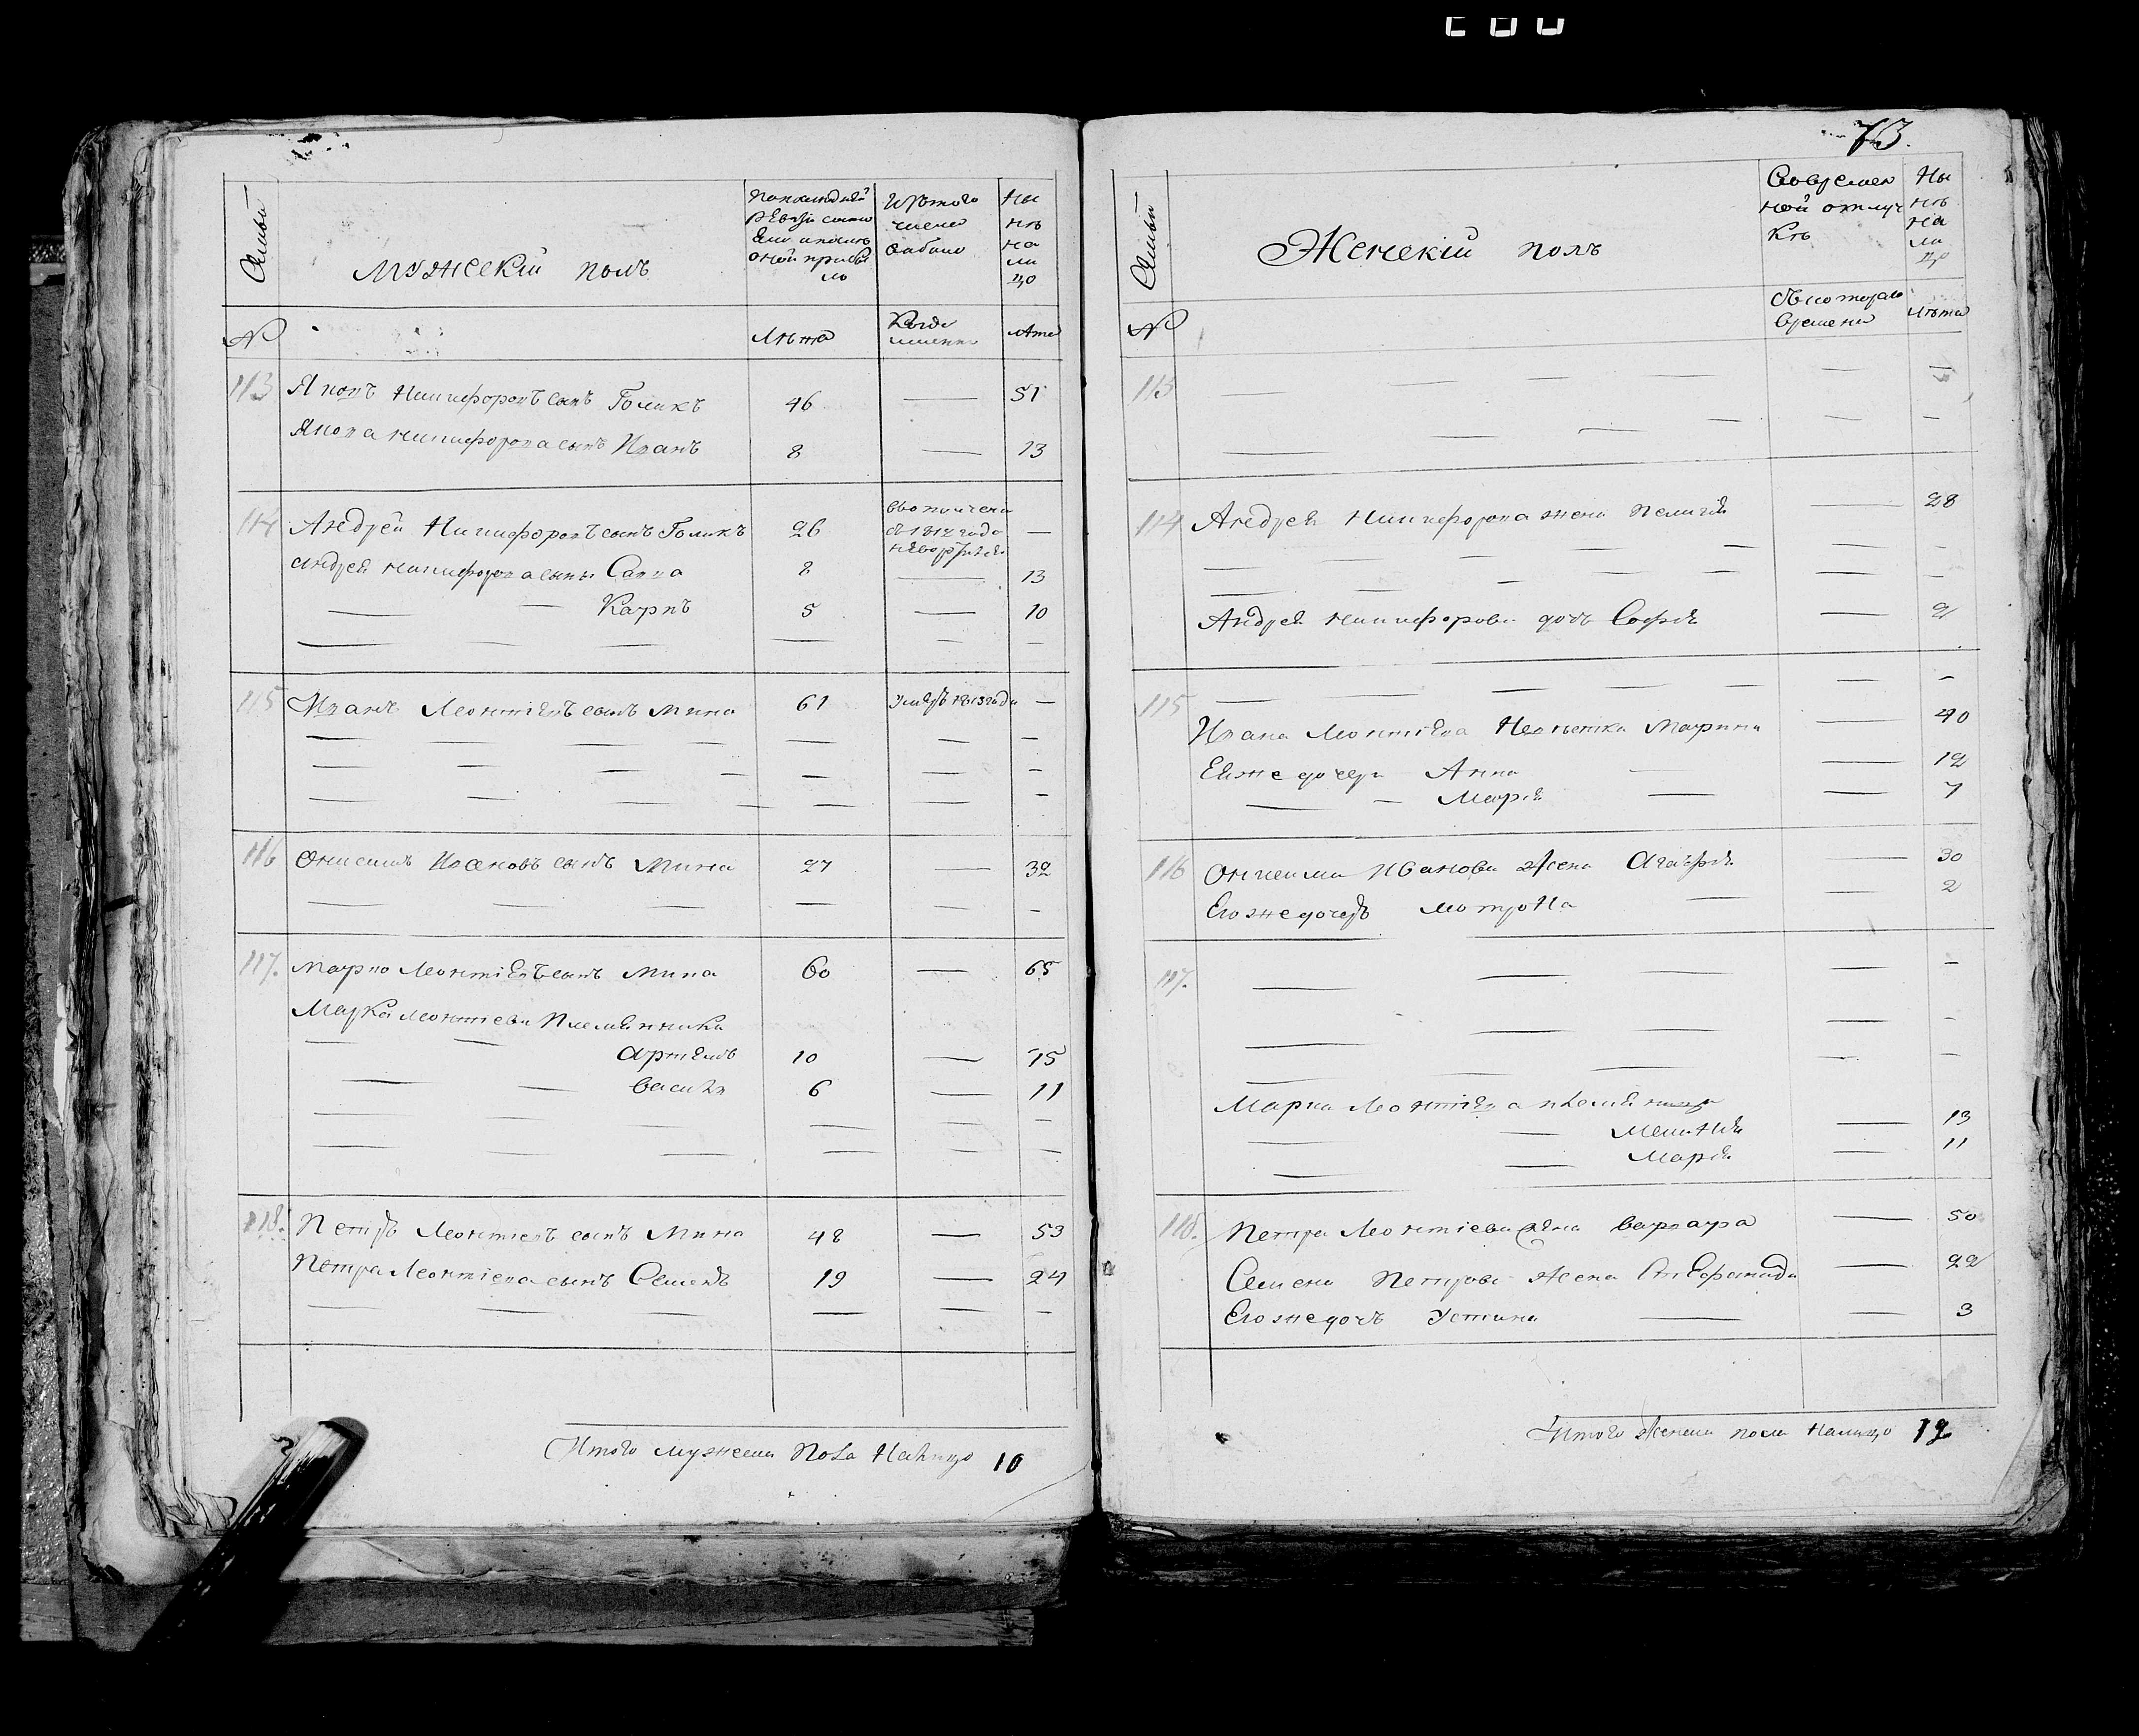 73.
Семьи
мужескій полъ
По последней ревизіи состояло и после оной прибыло
Изъ того числа выбыло
Ны нѣ на ли цо
№
Лѣта
Когда именно
Лета
113 Яковъ Никифоровъ сынъ Голикъ 46 — 51
Якова Никифорова сынъ Иванъ 8 — 13
114 Андрей Никифоровъ сынъ Голикъ 26 въ ополчении съ 1812 года —
Андрея Никифорова сыны Савва 8 — 13
— — Карпъ 5 — 10
115 Иванъ Леонтіевъ сынъ Мина 61 умеръ 1813 года —
116 Онисимъ Ивановъ сынъ Мина 27 — 32
117. Марко Леонтіевъ сынъ Мина 60 — 65
Марка Леонтіева племянники
— — Артемъ 10 — 15
— — Василь 6 — 11
118. Петръ Леонтиевъ сынъ Мина 48 — 53
Петра Леонтіева сынъ Семенъ 19 — 24
Итого мужеска пола налицо 10
Семьи
Женскій полъ
Во времен ной отлуч кѣ
Ны нѣ на ли цо
№
Съ котораго времени
Лѣта
113
114 Андрея Никифорова жена Пелагія — 28
Андрея Никифорова дочь Софія — 9
115
Ивана Леонтіева невестка Марина — 40
Ея же дочери Анна — 12
— — Марія — 7
116 Онисима Иванова жена Агафія — 30
Его же дочерь Мотрона — 2
117.
Марка Леонтіева племянницы
— Меланія — 13
— — Марія — 11
118. Петра Леонтіева жена Варвара — 50
Семена Петрова жена Стефанида — 22
Его же дочь Устина — 3
Итого женска пола налицо 12